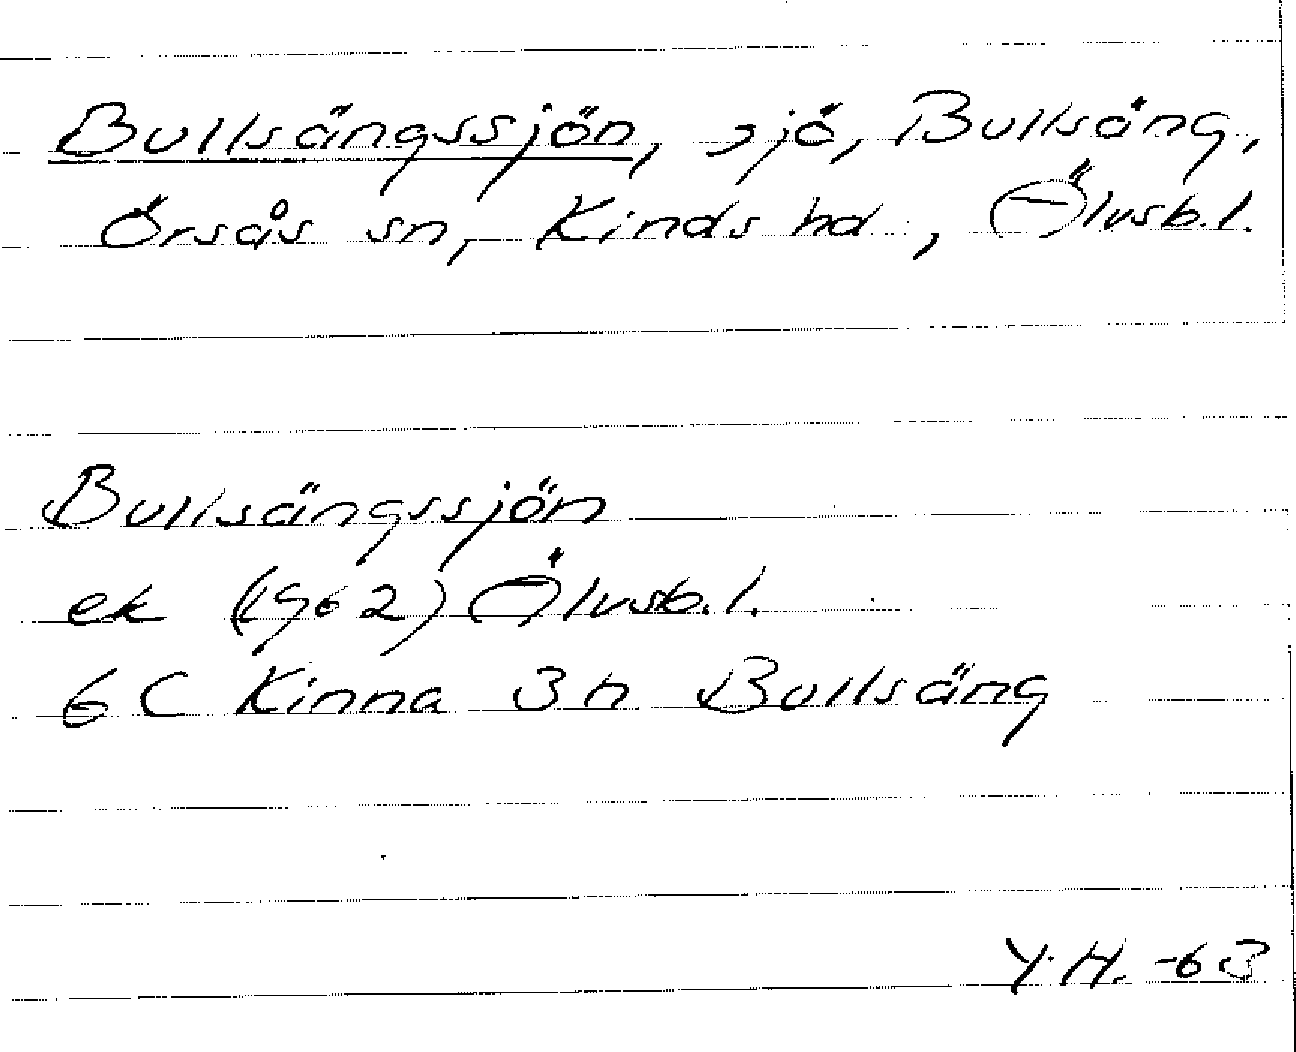 Bullsängssjön, sjö, Bullsäng,
Örsås sn, Kinds hd, Älvsb.l.
Bullsängssjön
ek (1962) Älvsb.l.
6C Kinna 3h Bullsäng
Y.H. -63